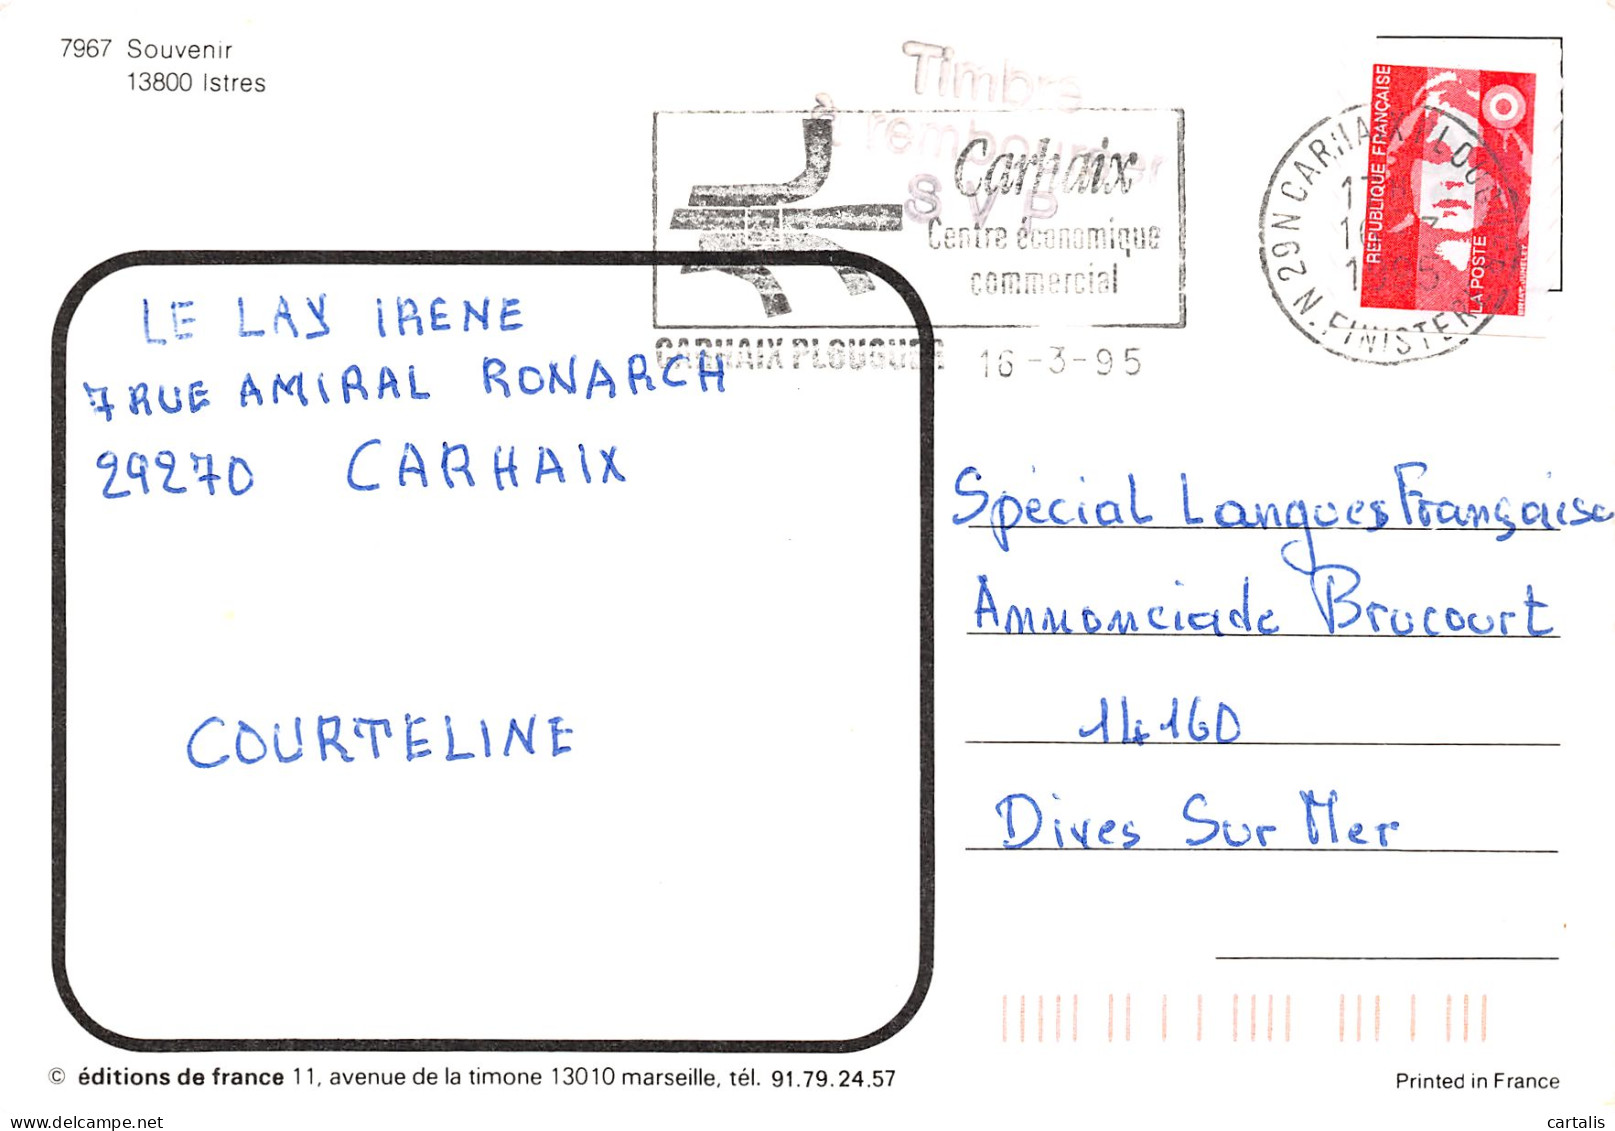 7967 Souvenir
13800 Istres
Timbre
à rembourser
S V P
Carhaix
Centre économique
commercial
CARHAIX PLOUGUER 16-3-95
29 N CARHAIX PLOUGUER
N. FINISTERE
REPUBLIQUE FRANÇAISE
LA POSTE
LE LAY IRENE
7 RUE AMIRAL RONARCH
29270 CARHAIX
COURTELINE
Spécial Langues Française
Annonciade Brucourt
14160
Dives Sur Mer
© éditions de france 11, avenue de la timone 13010 marseille, tél. 91.79.24.57
Printed in France
cartalis